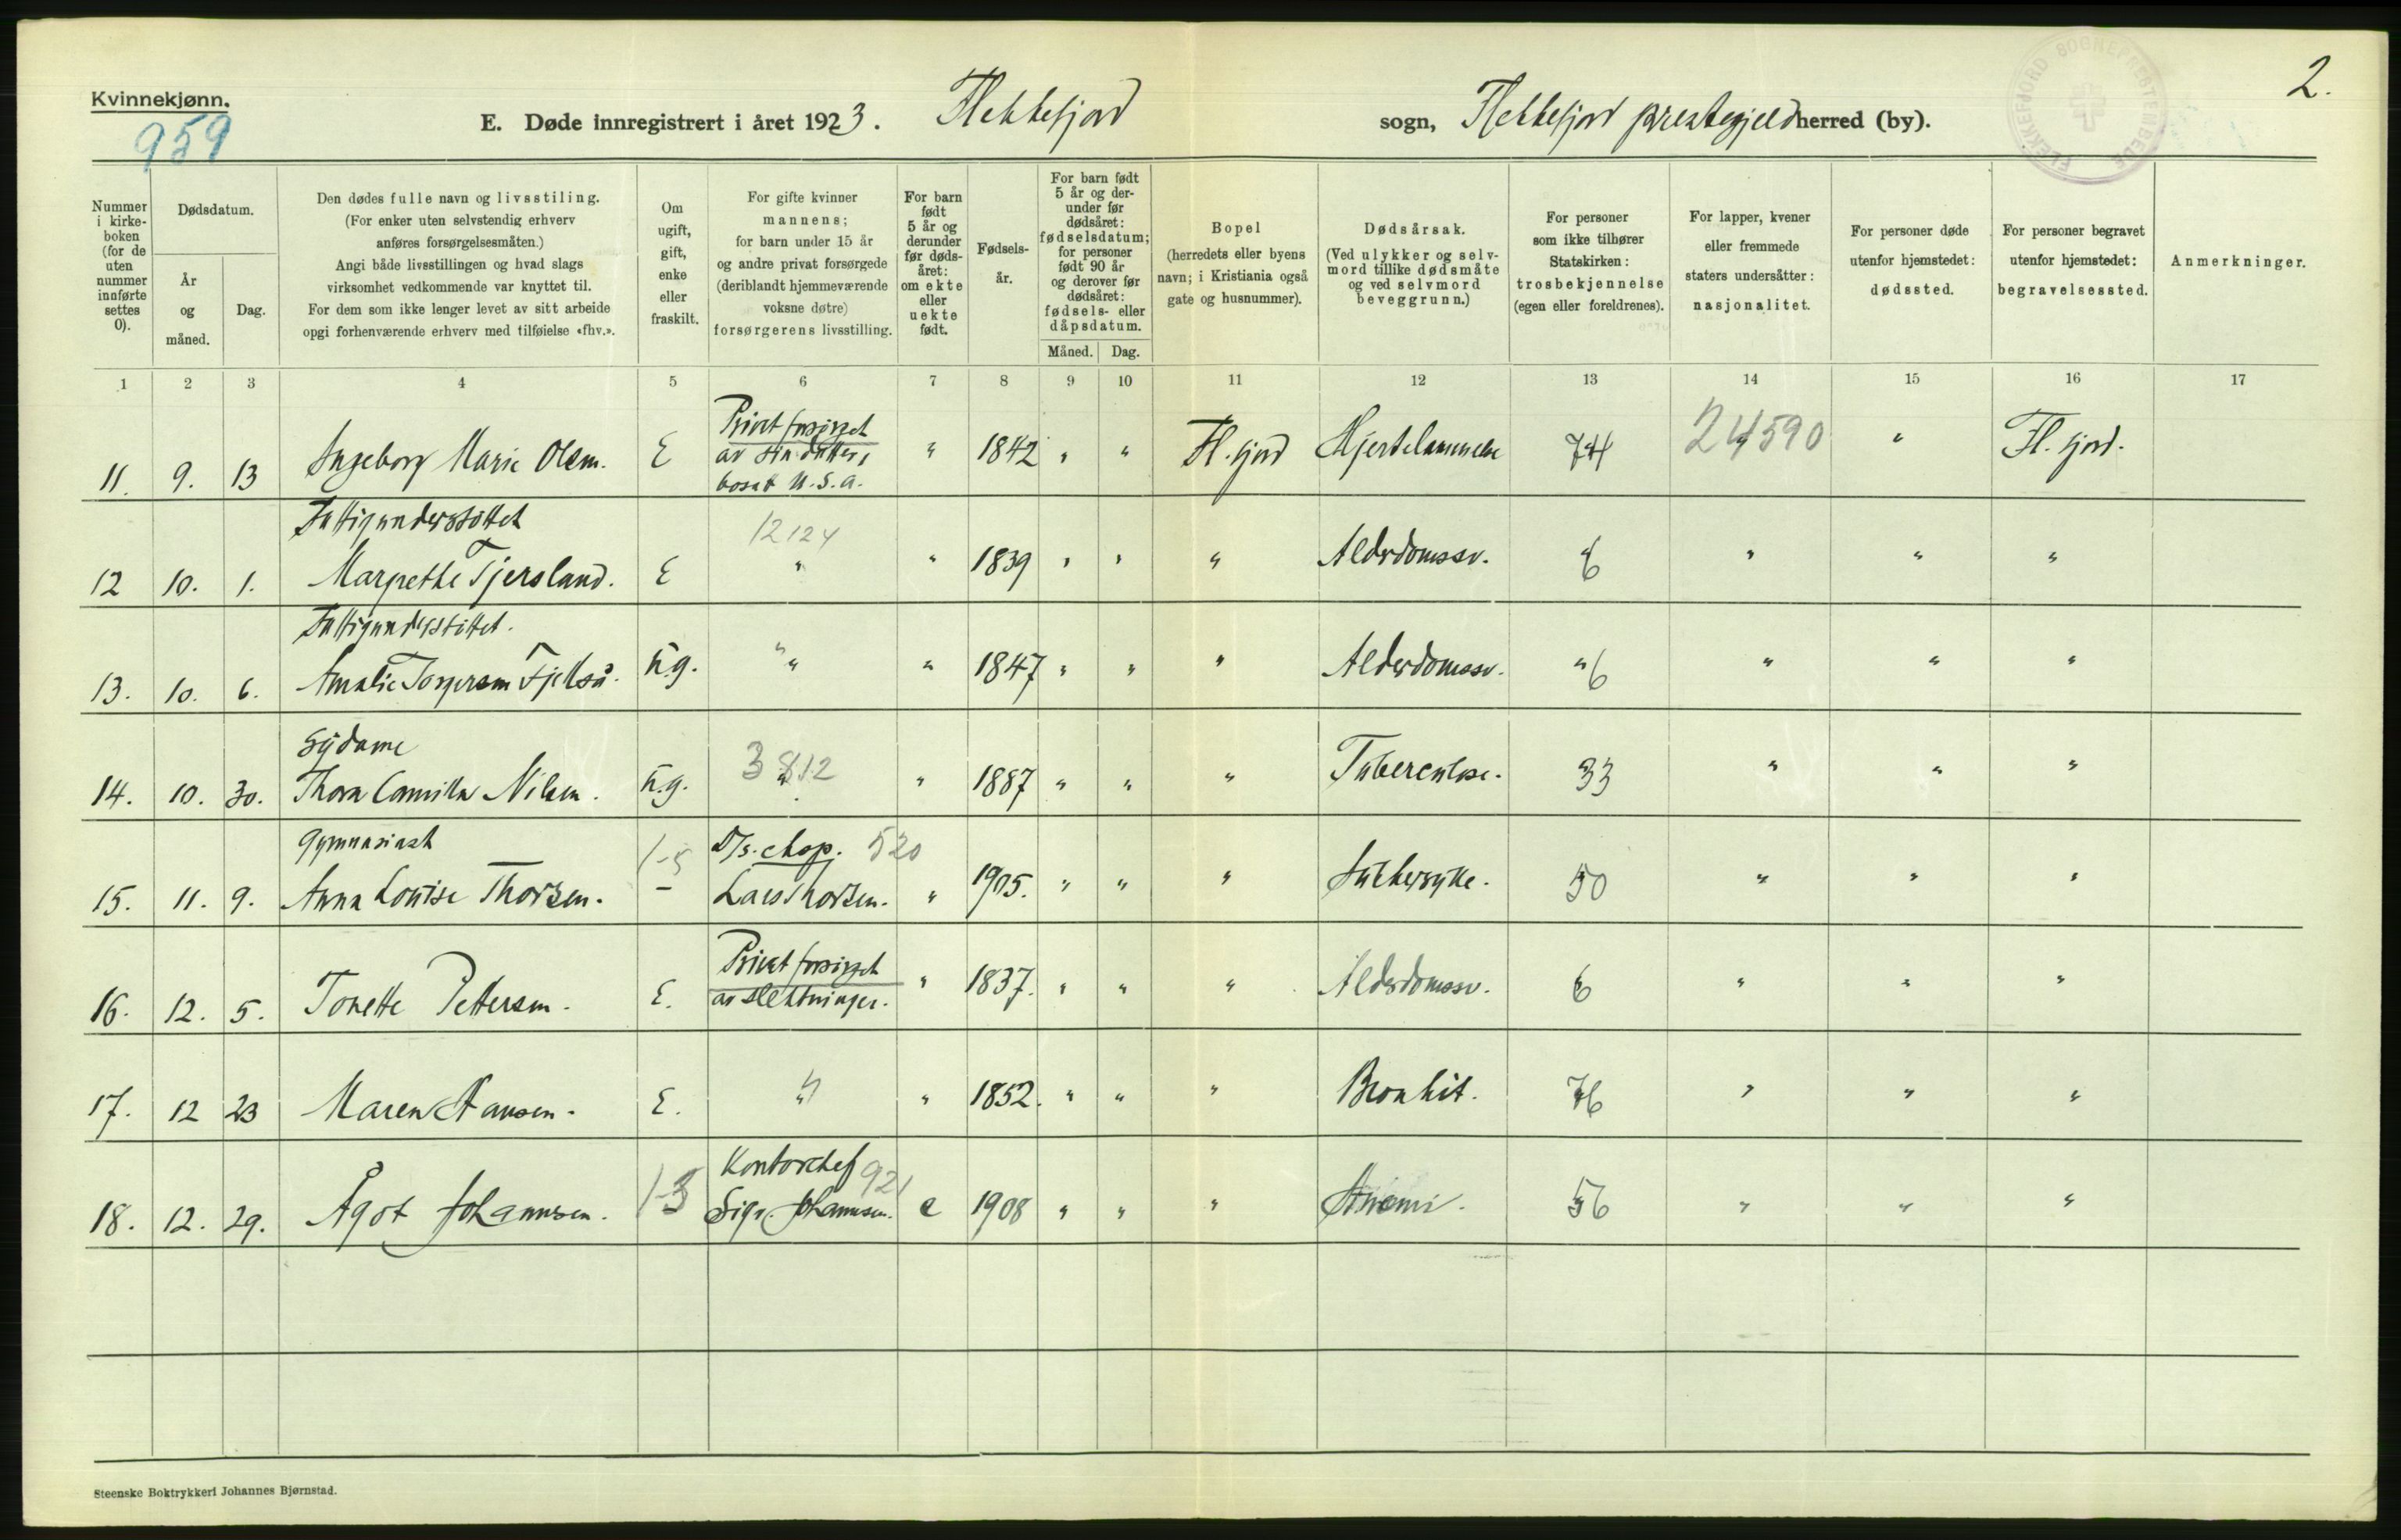 Kvinnekjønn.
959
E. Døde innregistrert i året 1923. Flekkefjord sogn, Flekkefjord prestegjeld herred (by).
2.
FLEKKEFJORD SOGNEPRESTEMBEDE
Nummer i kirkeboken (for de uten nummer innførte settes 0).
Dødsdatum.
År og måned.
Dag.
Den dødes fulle navn og livsstiling.
(For enker uten selvstendig erhverv
anføres forsørgelsesmåten.)
Angi både livsstillingen og hvad slags
virksomhet vedkommende var knyttet til.
For dem som ikke lenger levet av sitt arbeide
opgi forhenværende erhverv med tilføielse «fhv.».
Om ugift, gift, enke eller fraskilt.
For gifte kvinner
mannens;
for barn under 15 år
og andre privat forsørgede
(deriblandt hjemmeværende
voksne døtre)
forsørgerens livsstilling.
For barn født 5 år og derunder før dødsåret: om ekte eller uekte født.
Fødselsår.
For barn født 5 år og derunder før dødsåret: fødselsdatum; for personer født 90 år og derover før dødsåret: fødsels- eller dåpsdatum.
Måned. Dag.
Bopel
(herredets eller byens
navn; i Kristiania også
gate og husnummer).
Dødsårsak.
(Ved ulykker og selv-
mord tillike dødsmåte
og ved selvmord
beveggrunn.)
For personer
som ikke tilhører
Statskirken:
trosbekjennelse
(egen eller foreldrenes).
For lapper, kvener
eller fremmede
staters undersåtter:
nasjonalitet.
For personer døde
utenfor hjemstedet:
dødssted.
For personer begravet
utenfor hjemstedet:
begravelsessted.
Anmerkninger.
1 2 3 4 5 6 7 8 9 10 11 12 13 14 15 16 17
11. 9. 13 Ingeborg Marie Olsen. E Privat forsørget av sin datter, bosat U.S.A. " 1842 " " Fl.fjord Hjertelammelse 74 24590 " Fl.fjord.
Fattigunderstøttet
12 10. 1. Margrethe Tjersland. E 12124 " " 1839 " " " Alderdomssv. 6 " " "
Fattigunderstøttet.
13. 10. 6. Amalie Torgersen Fjellså. ug. " " " 1847 " " " Alderdomssv. " 6 " " "
Sydame
14. 10. 30. Thora Camilla Nilsen. ug. 3812 " " 1887 " " " Tuberculose. 33 " " "
Gymnasiast
15. 11. 9. Anna Louise Thorsen. 1-5 – D/s. exp. 520 Lars Thorsen. " 1905. " " " Sukkersyke. 50 " " "
16. 12. 5. Tonette Pettersen. E. Privat forsørget av slektninger. " 1837. " " " Alderdomssv. 6 " " "
17. 12 23 Maren Hansen. E. " " 1852. " " " Bronkit. 76 " " "
18. 12. 29. Ågot Johannesen. 1-3 Kontorchef 921 Sigv. Johannesen. e 1908 " " " Anemi. 56 " " "
Steenske Boktrykkeri Johannes Bjørnstad.